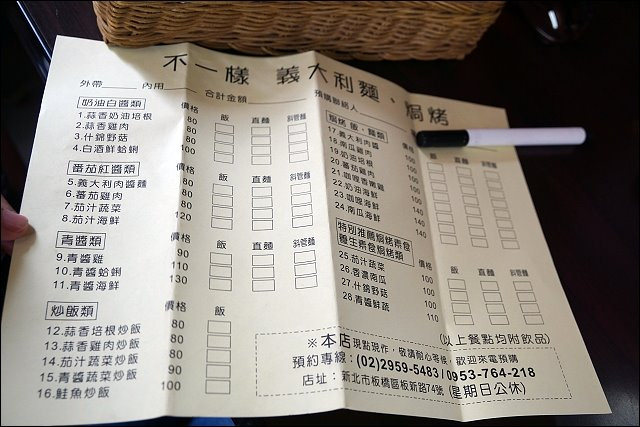 不一樣 義大利麵、焗烤
外帶 內用 合計金額 預購聯絡人
奶油白醬類 價格 飯 直麵 斜管麵
1.蒜香奶油培根 80
2.蒜香雞肉 80
3.什錦野菇 80
4.白酒鮮蛤蜊 100
番茄紅醬類 價格 飯 直麵 斜管麵
5.義大利肉醬麵 80
6.蕃茄雞肉 80
7.茄汁蔬菜 80
8.茄汁海鮮 120
青醬類 價格 飯 直麵 斜管麵
9.青醬雞 90
10.青醬蛤蜊 110
11.青醬海鮮 130
炒飯類 價格 飯
12.蒜香培根炒飯 80
13.蒜香雞肉炒飯 80
14.茄汁蔬菜炒飯 80
15.青醬蔬菜炒飯 90
16.鮭魚炒飯 100
焗烤 飯、麵類 價格 飯 直麵 斜管麵
17.義大利肉醬 100
18.南瓜雞肉 100
19.奶油培根 100
20.蕃茄雞肉 100
21.咖哩香嫩雞 100
22.奶油海鮮 140
23.咖哩海鮮 140
24.南瓜海鮮 140
特別推薦焗烤素食
養生素食焗烤類 價格 飯 直麵 斜管麵
25.茄汁蔬菜 100
26.香濃南瓜 100
27.什錦野菇 100
28.青醬鮮蔬 110
(以上餐點均附飲品)
※本店現點現作，敬請耐心等候，歡迎來電預購
預約專線：(02)2959-5483/0953-764-218
店址：新北市板橋區板新路74號 (星期日公休)